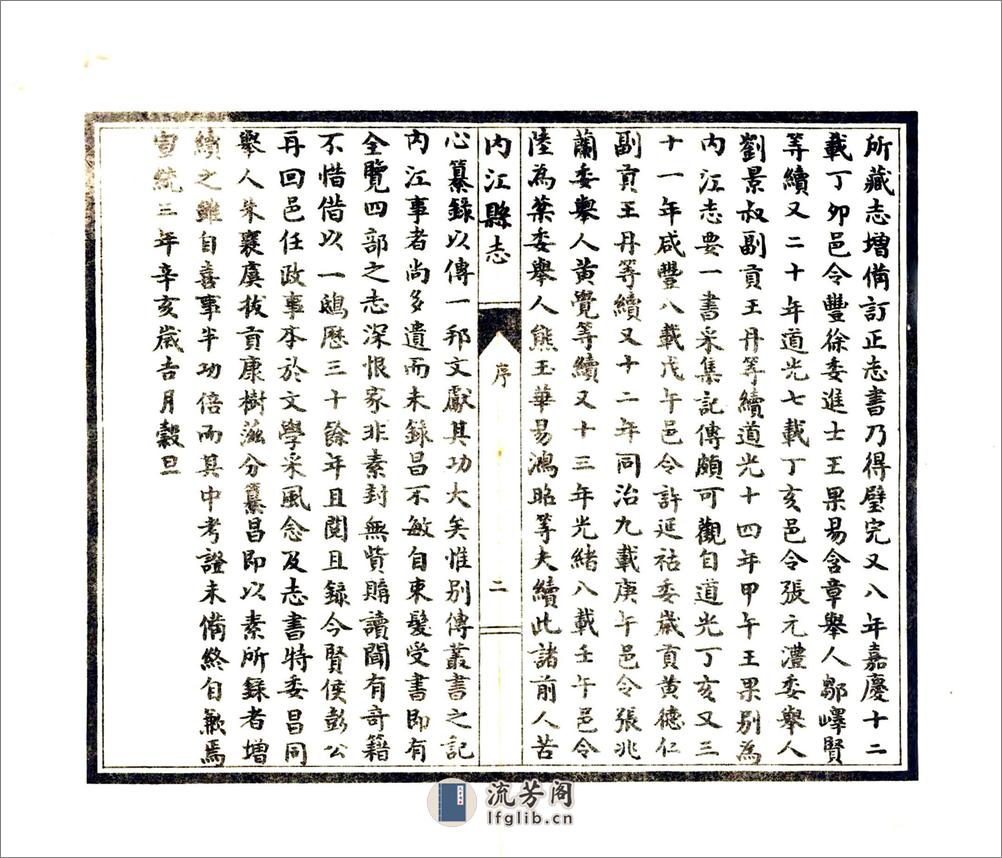 所藏志增備訂正志書乃得璧完又八年嘉慶十二
載丁卯邑令豐徐委進士王果易含章舉人鄒嶧賢
等續又二十年道光七載丁亥邑令張元澧委舉人
劉景叔副貢王丹等續道光十四年甲午王果別為
內江志要一書采集記傳頗可觀自道光丁亥又三
十一年咸豐八載戊午邑令許延祜委歲貢黃德仁
副貢王丹等續又十二年同治九載庚午邑令張兆
蘭委舉人黃覺等續又十三年光緒八載壬午邑令
陸為棻委舉人熊玉華易鴻昭等夫續此諸前人苦
內江縣志
序
二
心纂錄以傳一邦文獻其功大矣惟別傳叢書之記
內江事者尚多遺而未錄昌不敏自束髮受書即有
全覽四部之志深恨家非素封無貲購讀聞有奇籍
不惜借以一鴟歷三十餘年且閱且錄今賢侯彭公
再回邑任政事本於文學采風念及志書特委昌同
舉人朱襄虞拔貢康樹滋分纂昌即以素所錄者增
續之雖自喜事半功倍而其中考證未備終自歉焉
宣統三年辛亥歲吉月穀旦
流芳阁
lfglib.cn